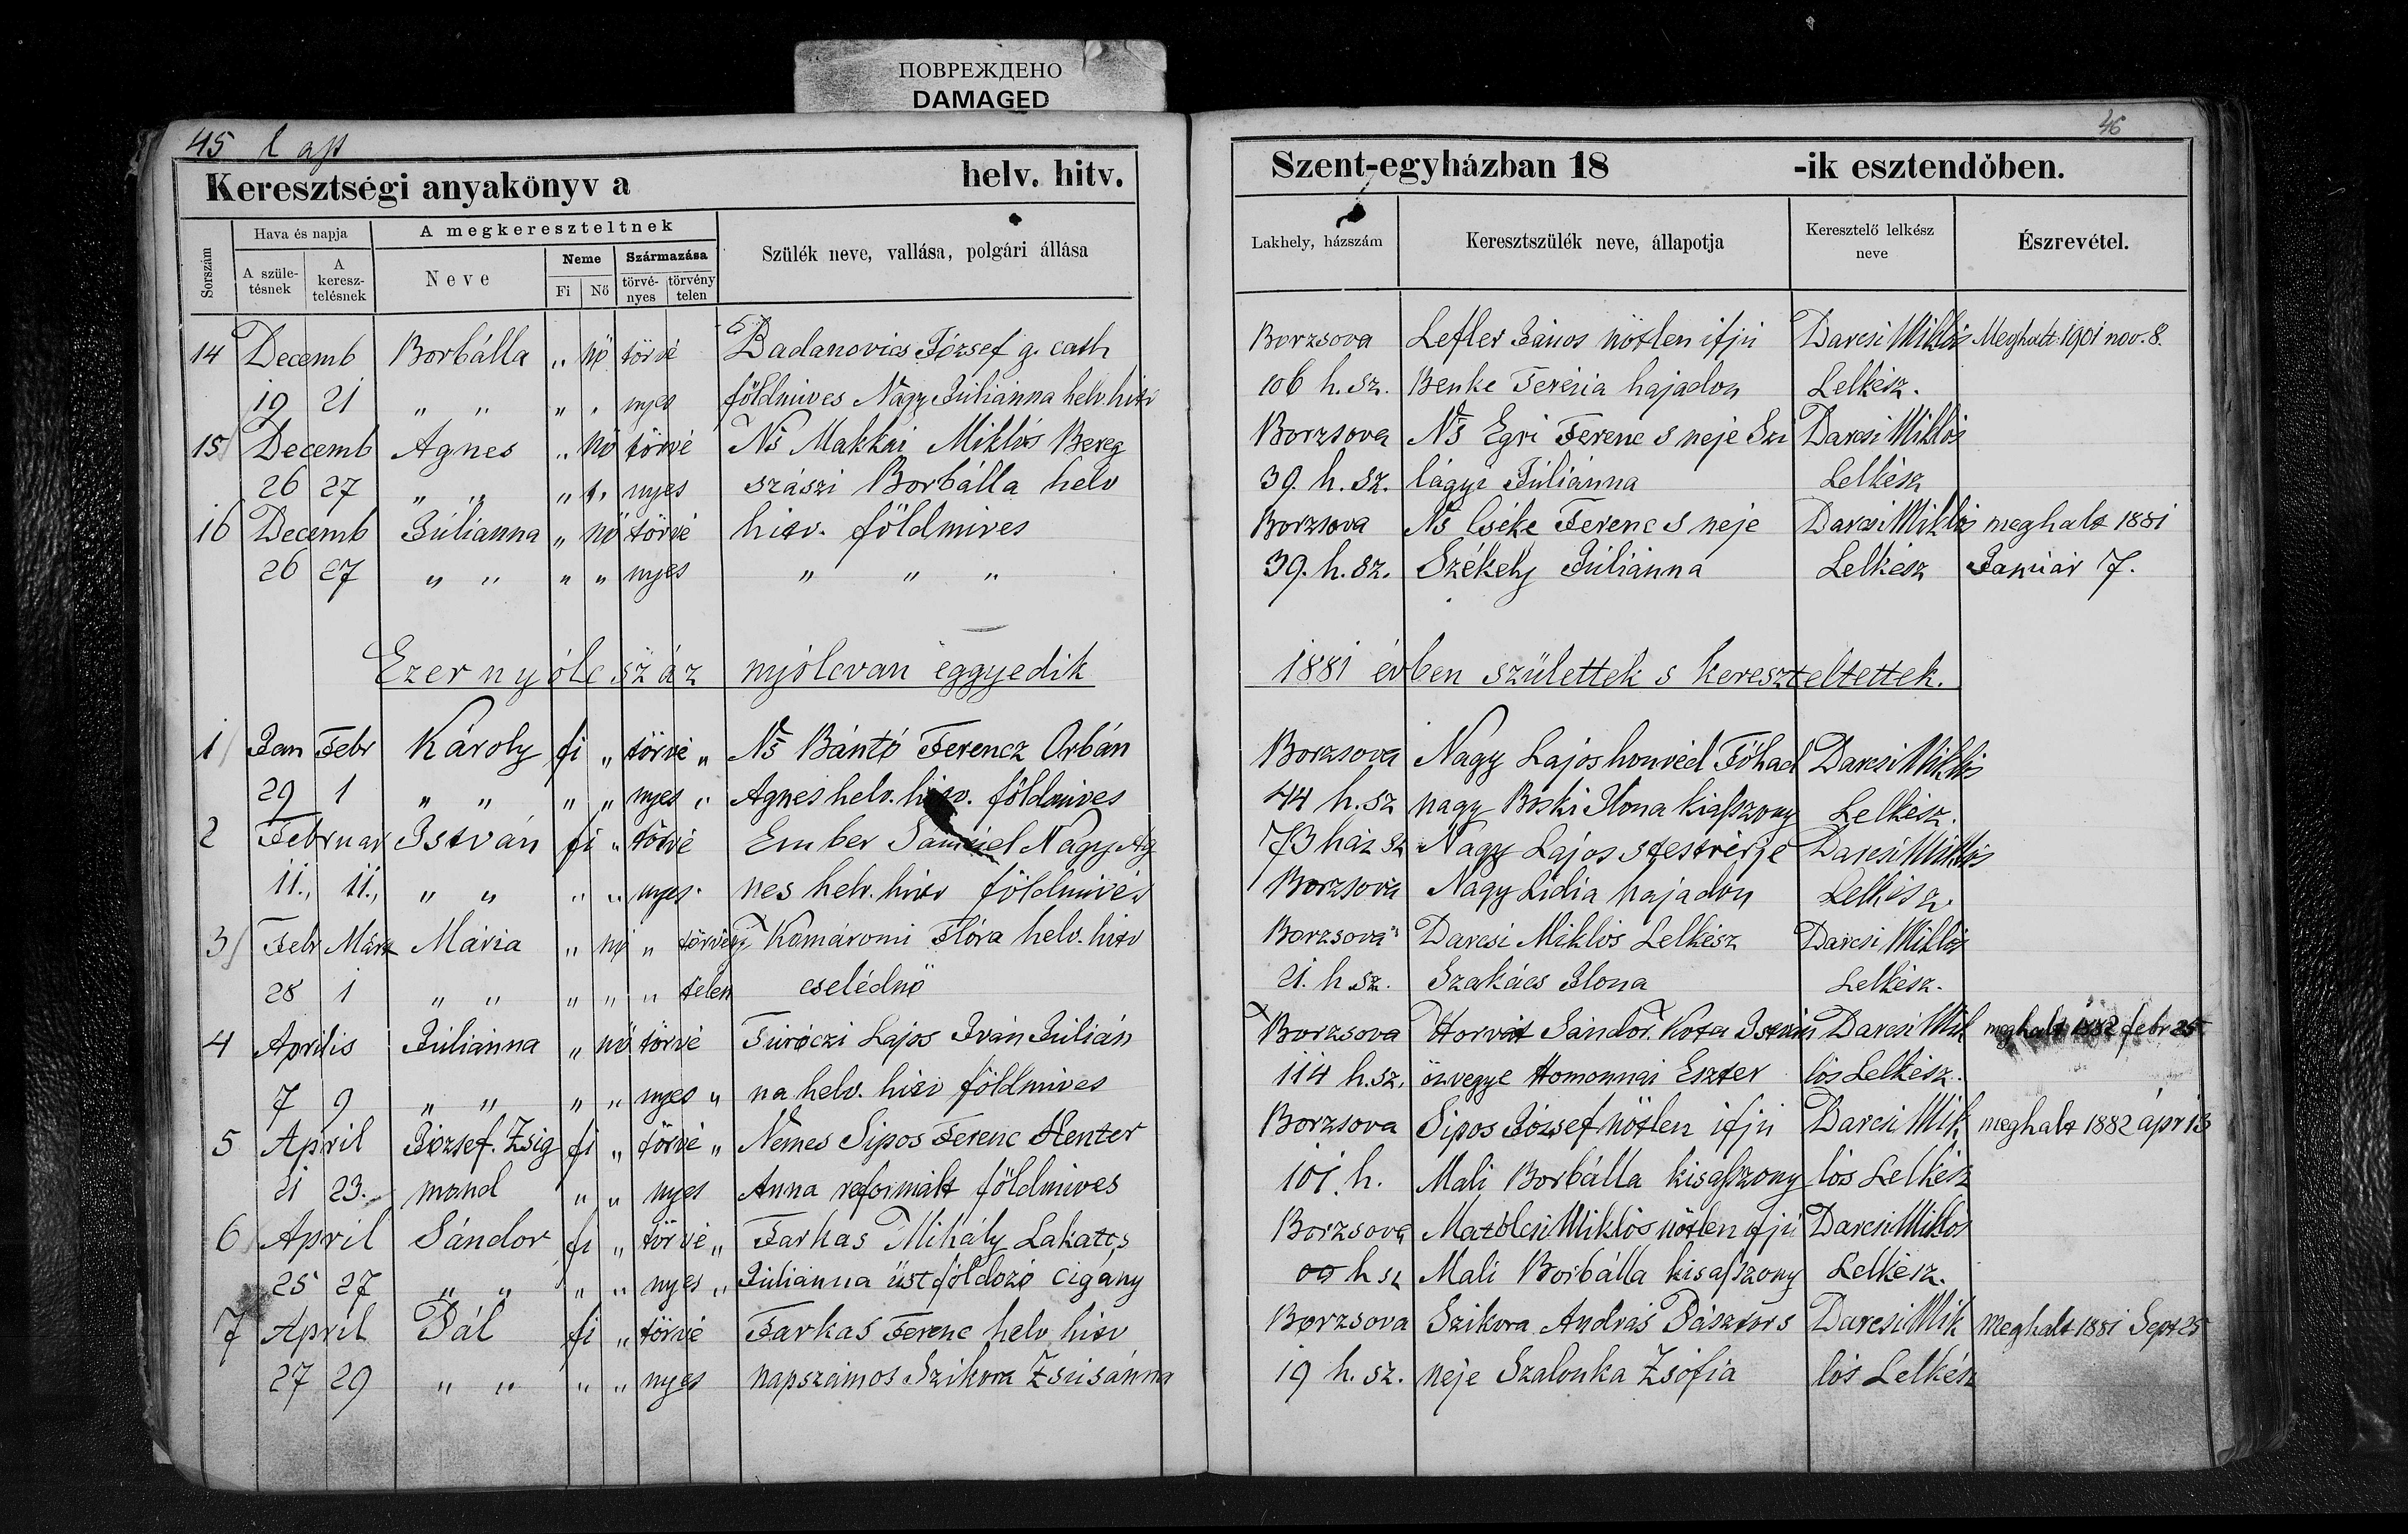 ПОВРЕЖДЕНО
DAMAGED
45 lap
Keresztségi anyakönyv a helv. hitv.
Sorszám
Hava és napja
A megkereszteltnek
Szülék neve, vallása, polgári állása
A születésnek
A keresztelésnek
Neve
Neme
Származása
Fi Nő
törvényes törvénytelen
14 Decemb Borbálla „ nő törvé Badanovics József g. cath
19 21 „ „ „ „ nyes földmives Nagy Juliánna helv. hitv
15 Decemb Agnes „ nő törvé Ns Makkai Miklós Bereg
26 27 „ „ „ „ nyes szászi Borbálla helv
16 Decemb Júlianna „ nő törvé hitv. földmives
26 27 „ „ „ „ nyes „ „ „
Ezernyólcszáz nyólcvan eggyedik
1 Jan Febr Károly fi „ törvé „ Ns Bántó Ferencz Orbán
29 1 „ „ „ „ nyes „ Agnes helv. hitv. földmives
2 Februar István fi „ törvé Ember Sámuel Nagy Ág
11., 11., „ „ „ „ nyes nes helv. hitv földmivés
3 Febr Márt Mária „ nő „ törvény Komáromi Flóra helv. hitv
28 1 „ „ „ „ „ telen cselédnő
4 Aprilis Júliánna „ nő törvé Turóczi Lajos Iván Julián
7 9 „ „ „ „ nyes „ na helv. hitv földmives
5 April József. Zsig fi „ törvé „ Nemes Sipos Ferenc Henter
21 23. mond „ „ nyes Anna reformált földmives
6 April Sándor fi „ törvé „ Farkas Mihály Lakatos
25 27 „ „ „ „ nyes „ Juliánna üstfóldozó cigány
7 April Pál fi „ törvé Farkas Ferenc helv hitv
27 29 „ „ „ „ nyes napszámos Szikora Zsusánna
46
Szent-egyházban 18 -ik esztendőben.
Lakhely, házszám
Keresztszülék neve, állapotja
Keresztelő lelkész neve
Észrevétel.
Borzsova Lefler János nőtlen ifjú Darcsi Miklós Meghalt 1901 nov. 8.
106 h. sz. Benke Terézia hajadon Lelkész.
Borzsova Ns Egri Ferenc s neje Szi Darcsi Miklós
39. h. sz. lágyi Júliánna Lelkész
Borzsova Ns Cséke Ferenc s neje Darcsi Miklós meghalt 1881
39. h. sz. Székely Júliánna Lelkész Január 7.
1881 évben születtek s kereszteltettek.
Borzsova Nagy Lajos honvéd Főhad Darcsi Miklós
44 h. sz nagy Ilona kiaszony Lelkész.
73 ház sz Nagy Lajos s testvérje Darcsi Miklós
Borzsova Nagy Lidia hajadon Lelkész.
Borzsova Darcsi Miklós Lelkész Darcsi Miklós
21. h. sz. Szakács Ilona Lelkész.
Borzsova Horvát Sándor. Kota István Darcsi Mik meghalt 1882 febr 25
114 h. sz. özvegye Homonnai Eszter lós Lelkész.
Borzsova Sipos József nőtlen ifjú Darcsi Mik meghalt 1882 ápr 13
101. h. Mali Borbálla kisaszony lós Lelkész
Borzsova Matólcsi Miklós nőtlen ifjú Darcsi Miklos
00 h sz Mali Borbálla kisaszony Lelkész.
Borzsova Szikora András Pásztor s Darcsi Mik meghalt 1881 Sept 25
19 h. sz. neje Szalonka Zsófia lós Lelkész